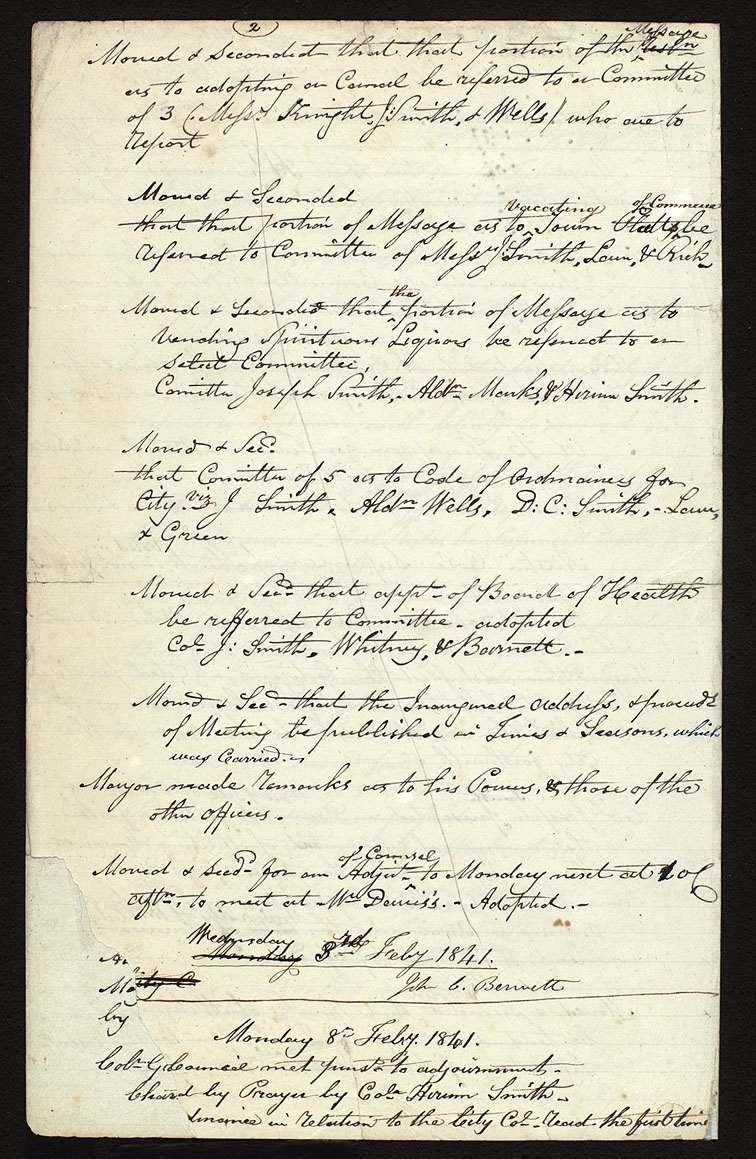 2
Message
Moved & Seconded that that portion of the
as to adopting a Canal be referred to a Committee
of 3 (Messrs Knight, J: Smith, & Wells) who are to
report
Moved & Seconded
vacating of Commerce
that that portion of Message as to Town Platts be
referred to Committee of Messrs J: Smith, Law, & Rich
the
Moved & Seconded that portion of Message as to
Vending Spirituous Liquors be referred to a
Select Committee,
Comittee Joseph Smith, - Aldn Marks, & Hirum Smith.
Moved & Secd
that Committee of 5 as to Code of Ordinances for
City. viz J Smith, Aldn Wells, D: C: Smith, - Law,
& Green
Moved & Secd that appt of Board of Health
be referred to Committee - adopted
Col J: Smith, Whitney, & Barnett. -
Moved & Secd that the Inaugural address, &
of Meeting be published in Times & Seasons, which
was Carried.
Mayor made remarks as to his Powers, & those of the
other officers.
of Counsel
Moved & Secd for an Adjt to Monday next at 1 oC
aftn, to meet at Mr Davis's. - Adopted. -
Wednesday
Monday 3rd Feby 1841.
John C. Bennett
by
Monday 8th Feby. 1841.
Council met purst to adjournment -
by Prayer by Coln Hirum Smith -
in relation to the City Col - read the first time